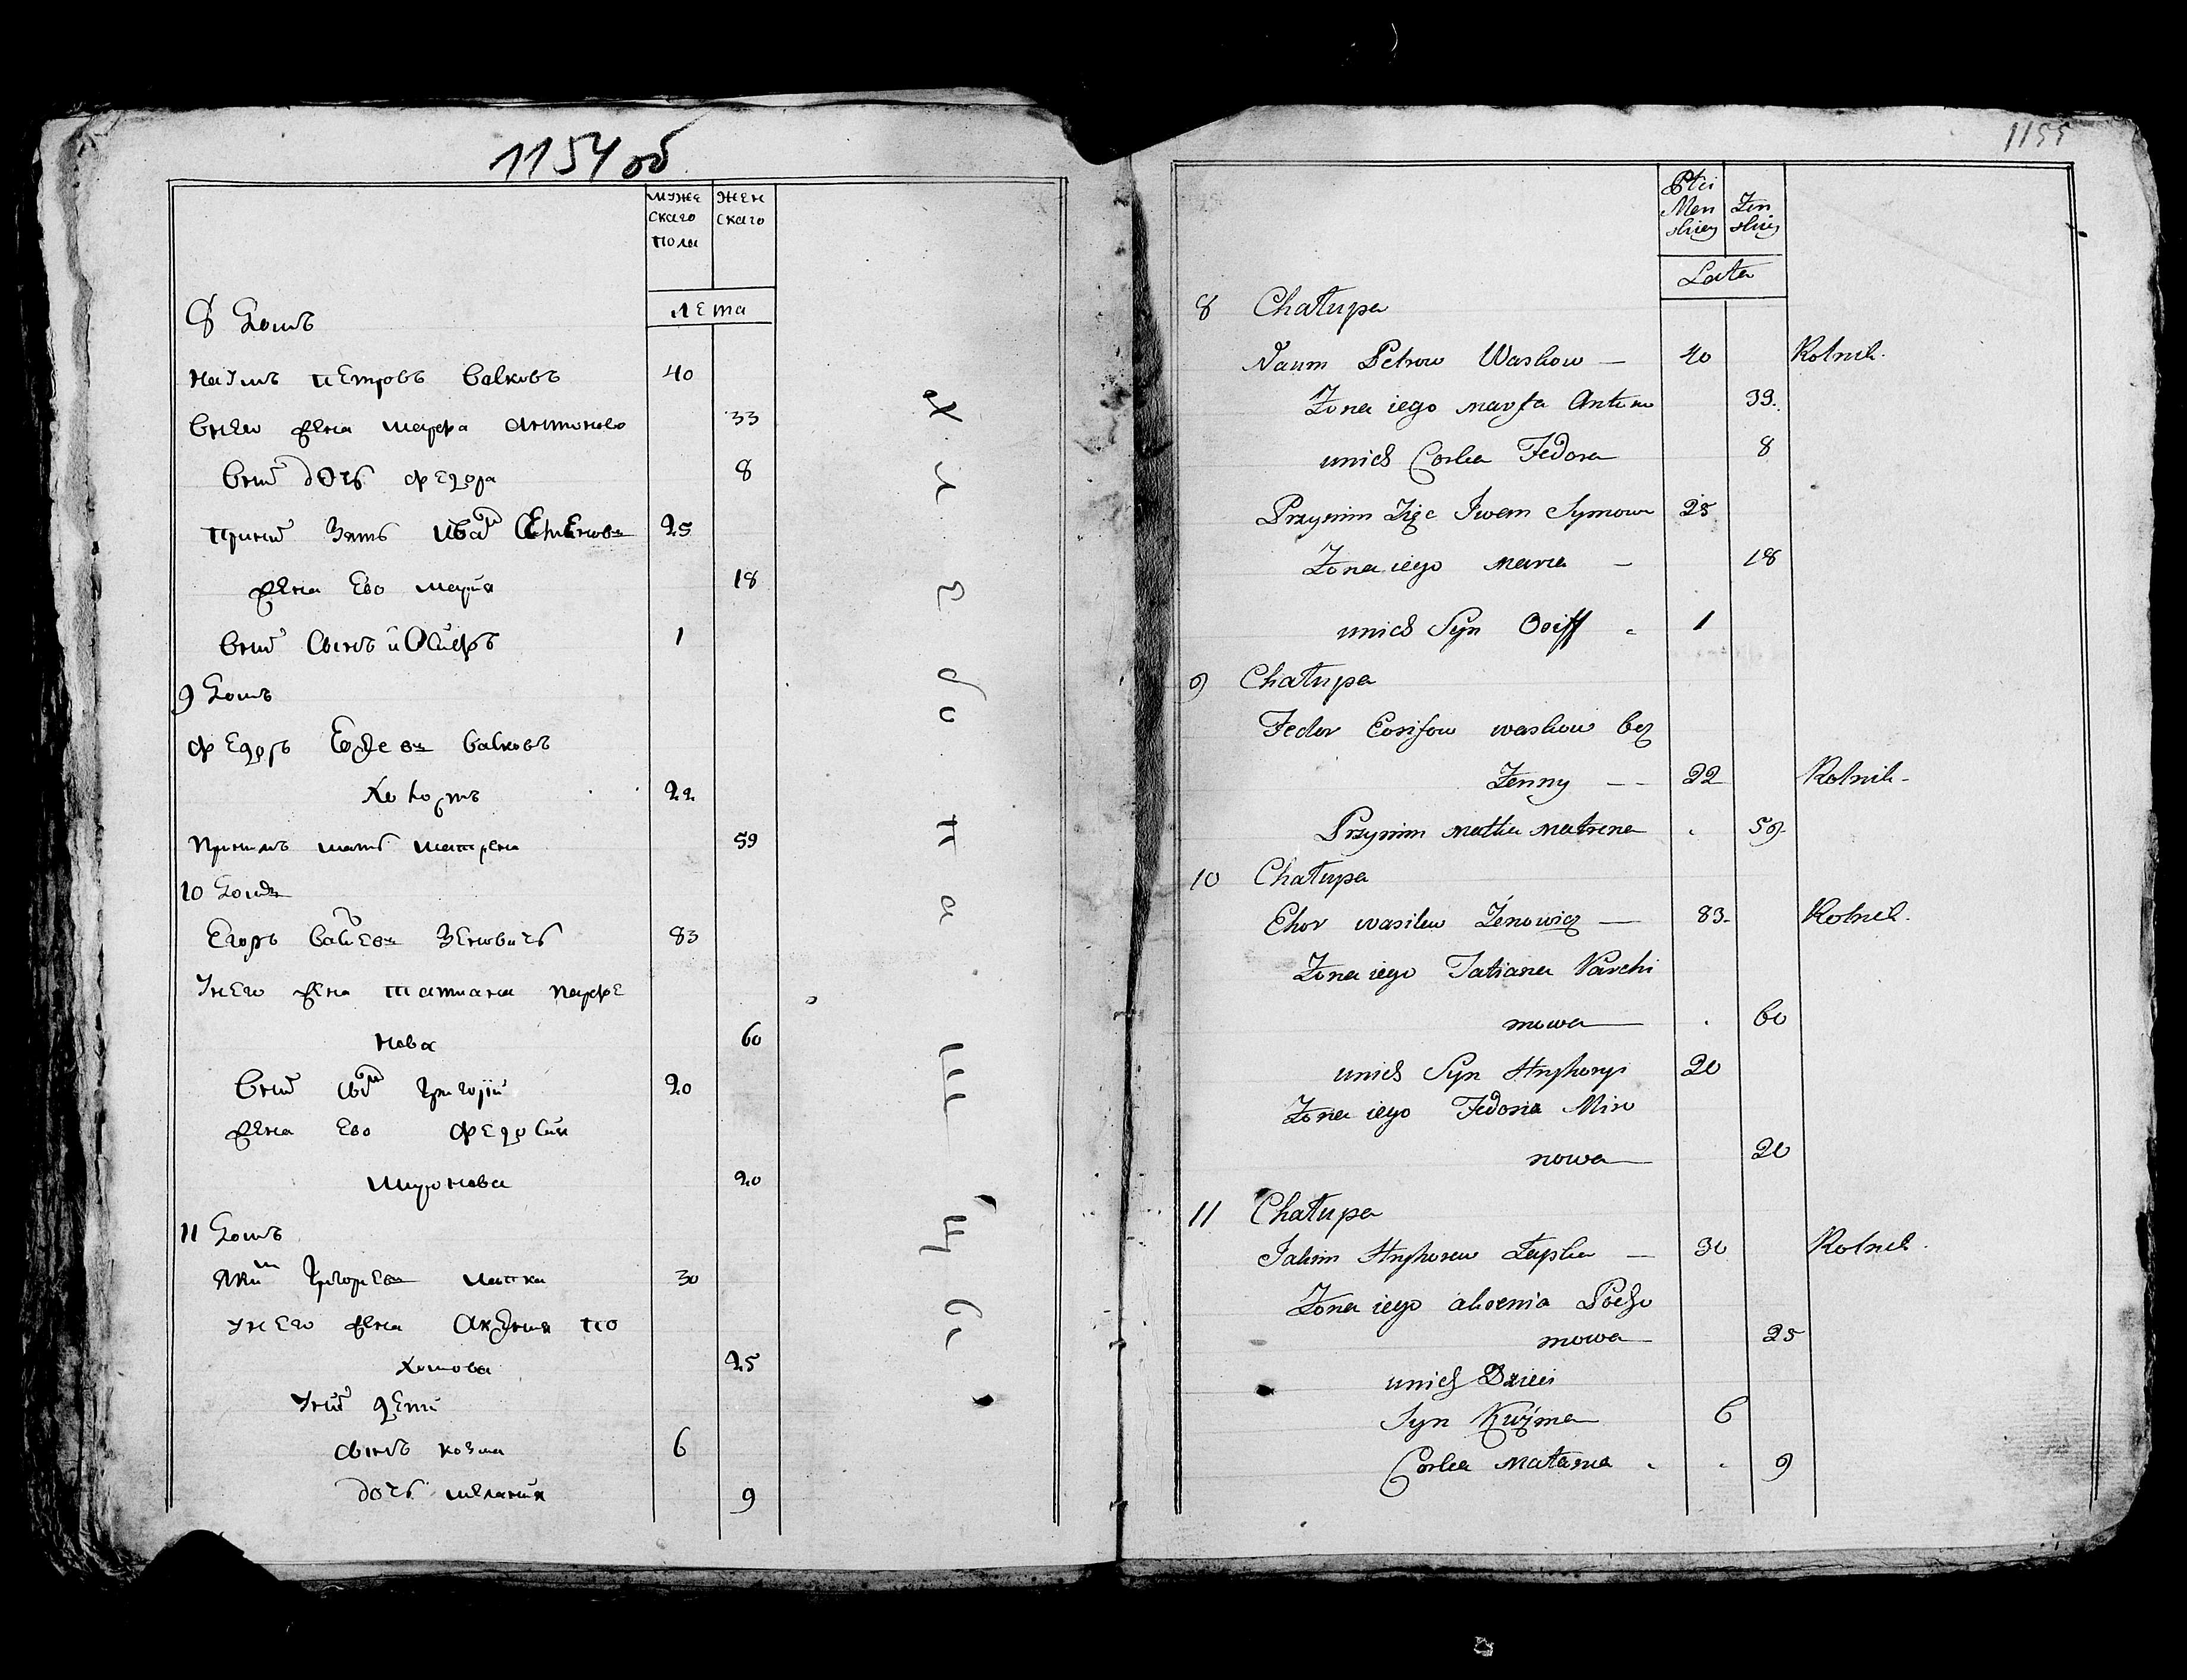 1154 об
муже
скаго
пола
жен
скаго
лета
8 Домъ
наумъ петровъ васковъ 40
внево жена марфа антонова 33
вних дочь федора 8
прiим зять иван Семенов 25
жена ево марiя 18
вних сынъ иОсифъ 1
9 Домъ
федоръ васковъ
холостъ 22
прiимъ мать матрена 59
10 Домъ
Егоръ васильев зеновичь 83
унего жена татиана парфе
нова 60
вних сын григорiй 20
жена ево федосия
миронова 20
11 Домъ
яким григорев цапка 30
унего жена Аксения по
хомова 25
уних дети
сынъ козма 6
дочь меланiя 9
хлебопашцы
1155
Płci
Men
skiey
Żen
skiey
Lata
8 Chałupa
Naum Petrow Waskow — 40 Rolnik.
Żona iego marfa Antono 33.
unich Corka Fedora 8
Przynim Zięc Iwan Symonow 25
Żona iego maria — 18
unich Syn Osiff 1
9 Chałupa
Fedor Eosifow waskow bez
Żenny — 22 Rolnik -
Przynim matka matrena . 59.
10 Chałupa
Ehor wasilew Zenowicz — 83. Rolnik.
Żona iego Tatiana Parchi
mowa . 60
unich Syn Hryhory 20
Żona iego Fedosia Miro
nowa 20
11 Chałupa
Jakim Hryhorew Capka — 30 Rolnik.
Żona iego aksenia Pocho
mowa 25
unich Dzieci
Syn Kuźma 6
Corka matasna . . 9